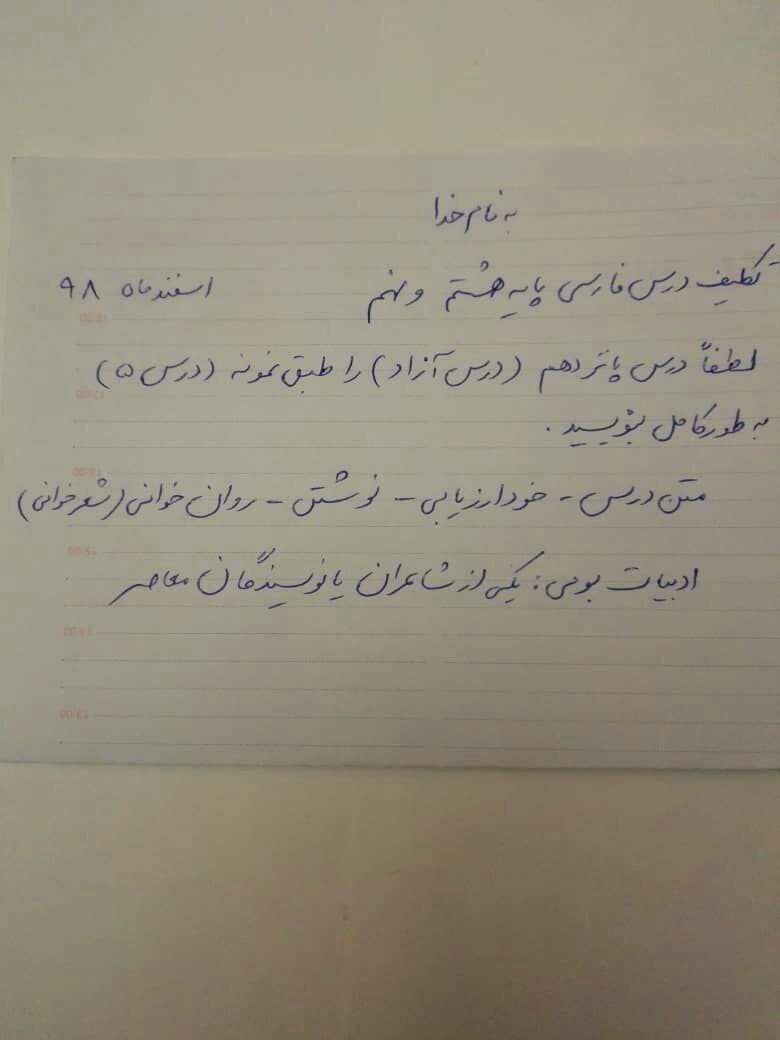 به نام خدا
تکلیف درس فارسی پایه هشتم و نهم اسفندماه ۹۸
لطفاً درس پانزدهم (درس آزاد) را طبق نمونه (درس ۵)
به طور کامل بنویسید.
متن درس - خودارزیابی - نوشتن - روان خوانی (شعرخوانی)
ادبیات بومی: یکی از شاعران یا نویسندگان معاصر
16:00
15:00
14:00
13:00